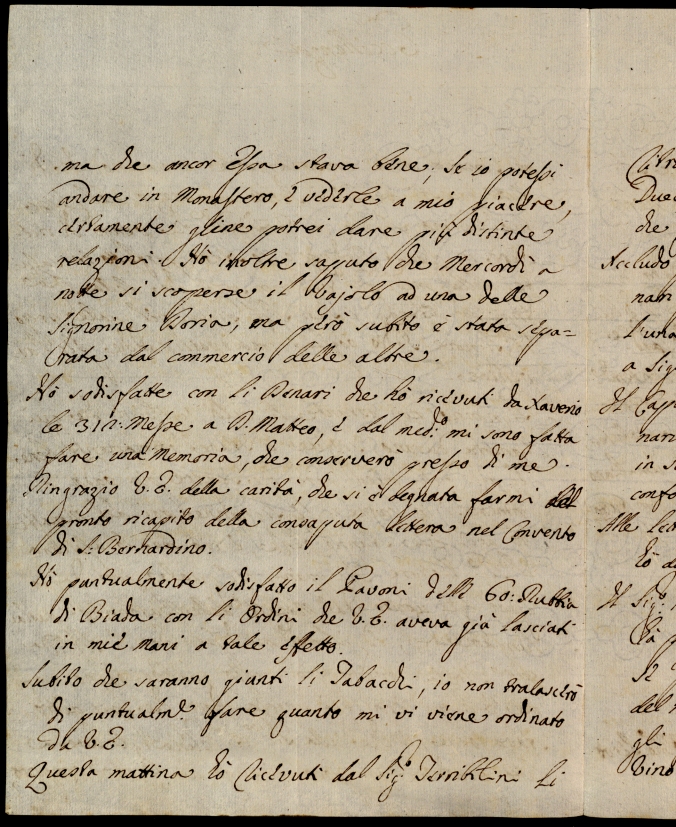 ma che ancor Essa stava bene; Se io potessi
andare in Monastero, e vederle a mio piacere,
certamente gline potrei dare più distinte
relazioni. Hò inoltre saputo che Mercordì a
notte si scoperse il Vajolo ad una delle
Signorine Doria, ma però subito è stata sepa=
rata dal commercio delle altre.
Hò sodisfatte con li Denari che hò ricevuti da Xaverio
le 312: Messe a D. Matteo, e dal med:º mi sono fatta
fare una Memoria, che conserverò presso di me.
Ringrazio V. E. della carità, che si è degnata farmi del
pronto ricapito della consaputa lettera nel Convento
di S: Bernardino.
Hò puntualmente sodisfatto il Pavoni delli 60: Rubbia
di Biada con li Ordini che V. E. aveva già lasciati
in mie mani a tale effetto.
Subito che saranno giunti li Tabacchi, io non tralascerò
di puntualm.e fare quanto mi vi viene ordinato
da V. E.
Questa mattina hò ricevuti dal Sig:º Terribilini li
Due
che
Accludo
nari
l'una
a Sig
Il Cap
nari
in s
confo
Alle lett
hò
Il Sig:
Se
del
gli